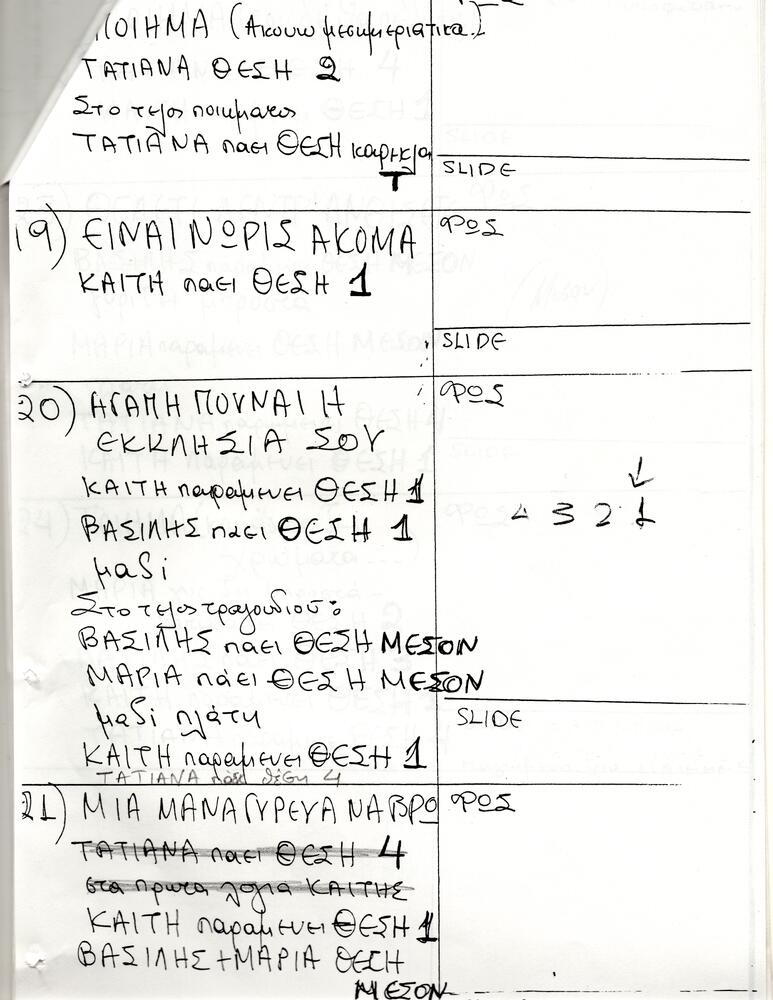 ΠΟΙΗΜΑ (Ακουω μεσημεριατικα..)
ΤΑΤΙΑΝΑ ΘΕΣΗ 2
Στο τελος ποιηματος
ΤΑΤΙΑΝΑ παει ΘΕΣΗ καρεκλα
Τ
SLIDE
19) ΕΙΝΑΙ ΝΩΡΙΣ ΑΚΟΜΑ
ΦΩΣ
ΚΑΙΤΗ παει ΘΕΣΗ 1
SLIDE
20) ΑΓΑΠΗ ΠΟΥΝΑΙ Η
ΦΩΣ
ΕΚΚΛΗΣΙΑ ΣΟΥ
ΚΑΙΤΗ παραμενει ΘΕΣΗ 1
ΒΑΣΙΛΗΣ παει ΘΕΣΗ 1
4 3 2 1
μαζι
Στο τελος τραγουδιου:
ΒΑΣΙΛΗΣ παει ΘΕΣΗ ΜΕΣΟΝ
ΜΑΡΙΑ πάει ΘΕΣΗ ΜΕΣΟΝ
μαζι πλάτη
SLIDE
ΚΑΙΤΗ παραμενει ΘΕΣΗ 1
ΤΑΤΙΑΝΑ πάει θέση 4
21) ΜΙΑ ΜΑΝΑ ΓΥΡΕΥΑ ΝΑ ΒΡΩ
ΦΩΣ
ΤΑΤΙΑΝΑ παει ΘΕΣΗ 4
στα πρωτα λογια ΚΑΙΤΗΣ
ΚΑΙΤΗ παραμενει ΘΕΣΗ 1
ΒΑΣΙΛΗΣ + ΜΑΡΙΑ ΘΕΣΗ
ΜΕΣΟΝ